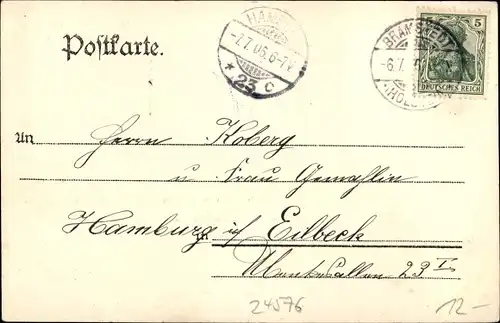 Postkarte.
HAMB
-7.7.06.6-7V.
* 23 c
BRAMSTEDT
-6.7.
(HOLST
5
DEUTSCHES REICH
An Herrn Koberg
u Frau Gemahlin
in Hamburg i/ Eilbeck
23 I
24576
12-